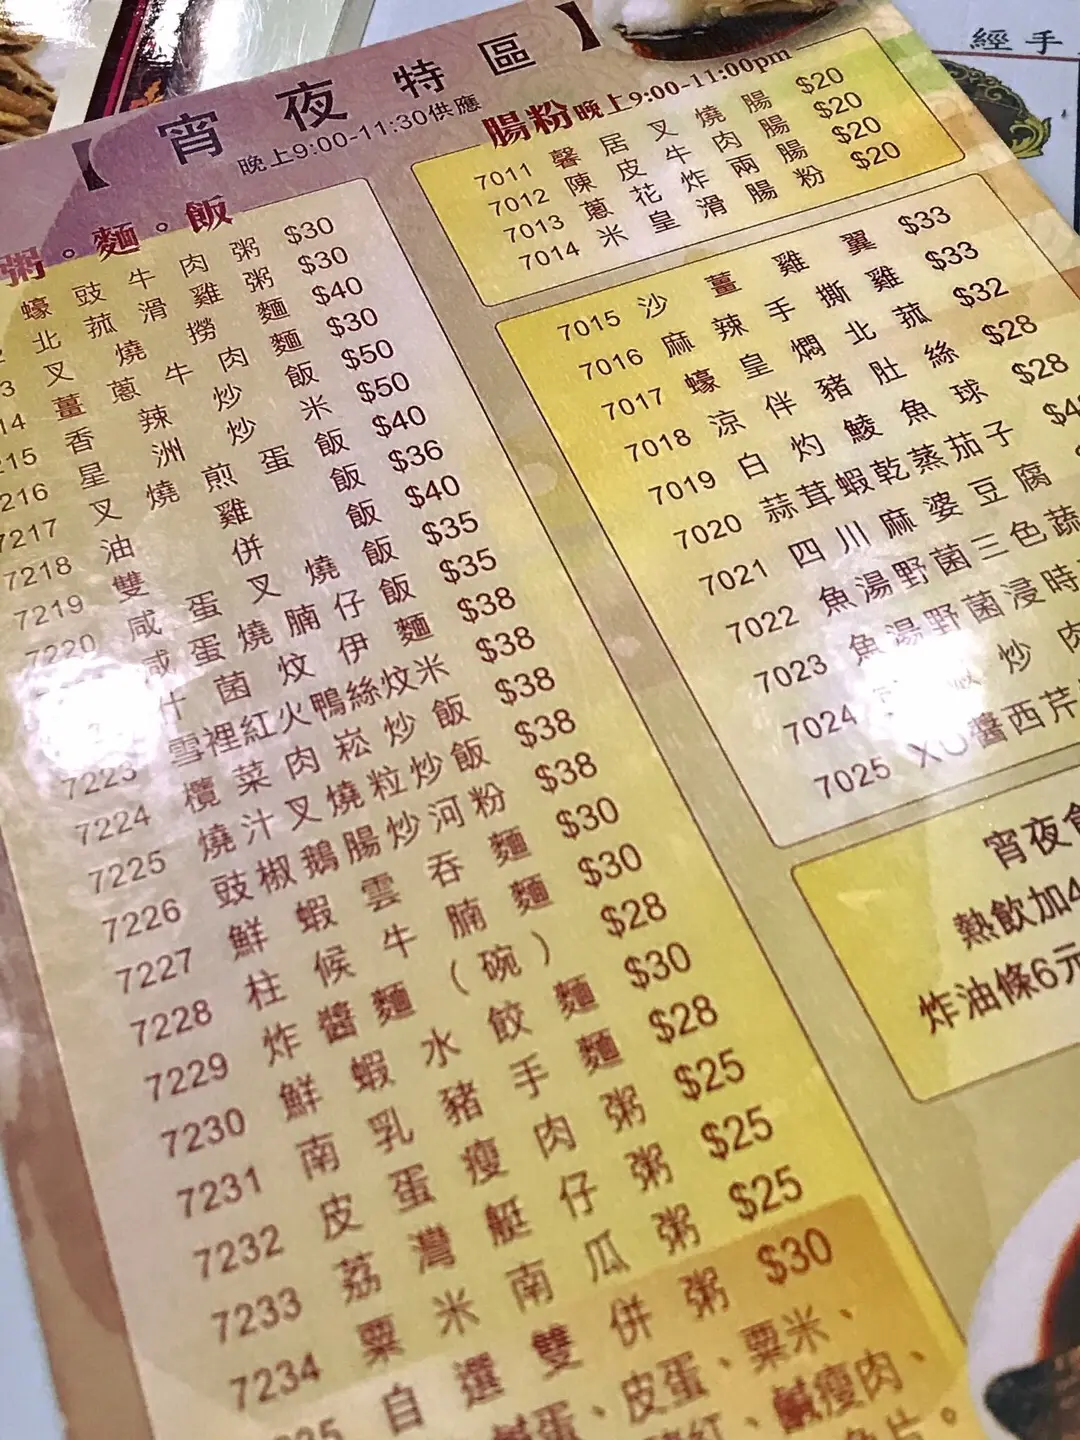 經手
【宵夜特區】
晚上9:00-11:30供應
粥。麵。飯
蠔豉牛肉粥 $30
2 北菰滑雞粥 $30
3 叉燒撈麵 $40
14 薑蔥牛肉麵 $30
215 香辣炒飯 $50
216 星洲炒米 $50
7217 叉燒煎蛋飯 $40
7218 油雞飯 $36
7219 雙併飯 $40
7220 咸蛋叉燒飯 $35
咸蛋燒腩仔飯 $35
什菌炆伊麵 $38
7223 雪裡紅火鴨絲炆米 $38
7224 欖菜肉崧炒飯 $38
7225 燒汁叉燒粒炒飯 $38
7226 豉椒鵝腸炒河粉 $38
7227 鮮蝦雲吞麵 $30
7228 柱候牛腩麵 $30
7229 炸醬麵（碗） $28
7230 鮮蝦水餃麵 $30
7231 南乳豬手麵 $28
7232 皮蛋瘦肉粥 $25
7233 荔灣艇仔粥 $25
7234 粟米南瓜粥 $25
35 自選雙併粥 $30
鹹蛋、皮蛋、粟米、
紅、鹹瘦肉、
片。
腸粉晚上9:00-11:00pm
7011 馨居叉燒腸 $20
7012 陳皮牛肉腸 $20
7013 蔥花炸兩腸 $20
7014 米皇滑腸粉 $20
7015 沙薑雞翼 $33
7016 麻辣手撕雞 $33
7017 蠔皇燜北菰 $32
7018 涼伴豬肚絲 $28
7019 白灼鯪魚球 $28
7020 蒜茸蝦乾蒸茄子 $4
7021 四川麻婆豆腐
7022 魚湯野菌三色蔬
7023 魚湯野菌浸時
7024 炒肉
7025 XO醬西芹
宵夜食
熱飲加4
炸油條6元